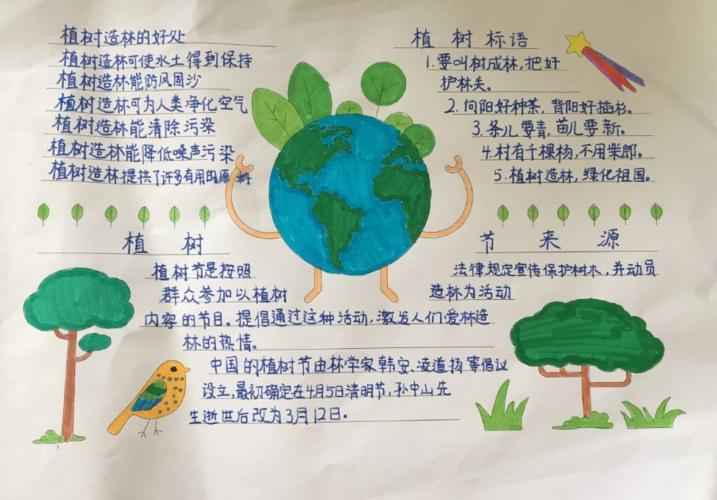 植树造林的好处
植树造林可使水土得到保持
植树造林能防风固沙
植树造林可为人类净化空气
植树造林能清除污染
植树造林能降低噪声污染
植树造林提供了许多有用的原树
植树标语
1.要叫树成林,把好
护林关。
2.向阳好种茶,背阳好插杉。
3.条儿要青,苗儿要新。
4.村有千棵杨,不用柴郎。
5.植树造林,绿化祖国。
植树 节来源
植树节是按照 法律规定宣传保护树木,并动员
群众参加以植树 造林为活动
内容的节日。提倡通过这种活动,激发人们爱林造
林的热情。
中国的植树节由林学家韩安、凌道扬等倡议
设立,最初确定在4月5日清明节,孙中山先
生逝世后改为3月12日。